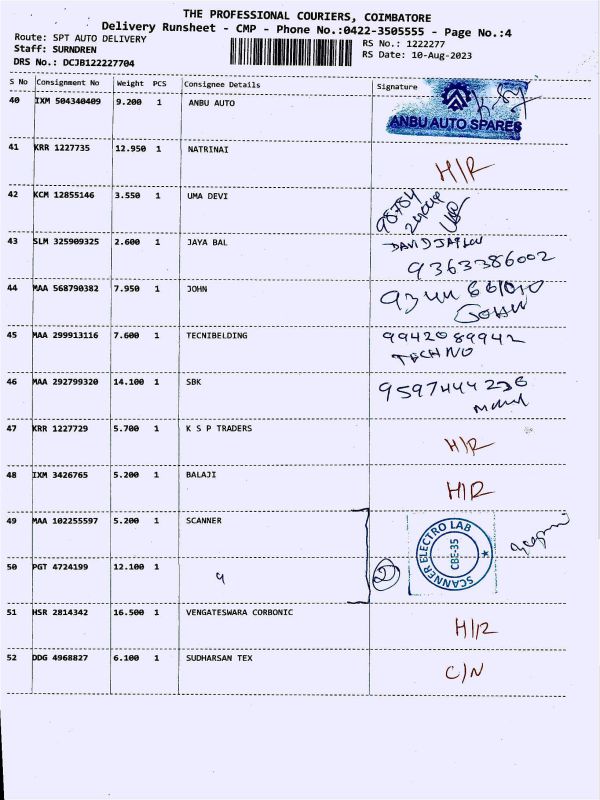 THE PROFESSIONAL COURIERS, COIMBATORE
Delivery Runsheet - CMP - Phone No.:0422-3505555 - Page No.:4
Route: SPT AUTO DELIVERY
RS No.: 1222277
Staff: SURNDREN
RS Date: 10-Aug-2023
DRS No.: DCJB122227704
S No Consignment No Weight PCS Consignee Details Signature
40 IXM 504340409 9.200 1 ANBU AUTO
ANBU AUTO SPARES
41 KRR 1227735 12.950 1 NATRINAI
H/R
42 KCM 12855146 3.550 1 UMA DEVI
98784
43 SLM 325909325 2.600 1 JAYA BAL
DAVID
9363386002
44 MAA 568790382 7.950 1 JOHN
JOHN
45 MAA 299913116 7.600 1 TECNIBELDING
9942089942
TECHNO
46 MAA 292799320 14.100 1 SBK
9597444236
47 KRR 1227729 5.700 1 K S P TRADERS
H/R
48 IXM 3426765 5.200 1 BALAJI
H/R
49 MAA 102255597 5.200 1 SCANNER
SCANNER ELECTRO LAB
CBE-35
50 PGT 4724199 12.100 1
2
51 HSR 2814342 16.500 1 VENGATESWARA CORBONIC
H/R
52 DDG 4968827 6.100 1 SUDHARSAN TEX
C/N